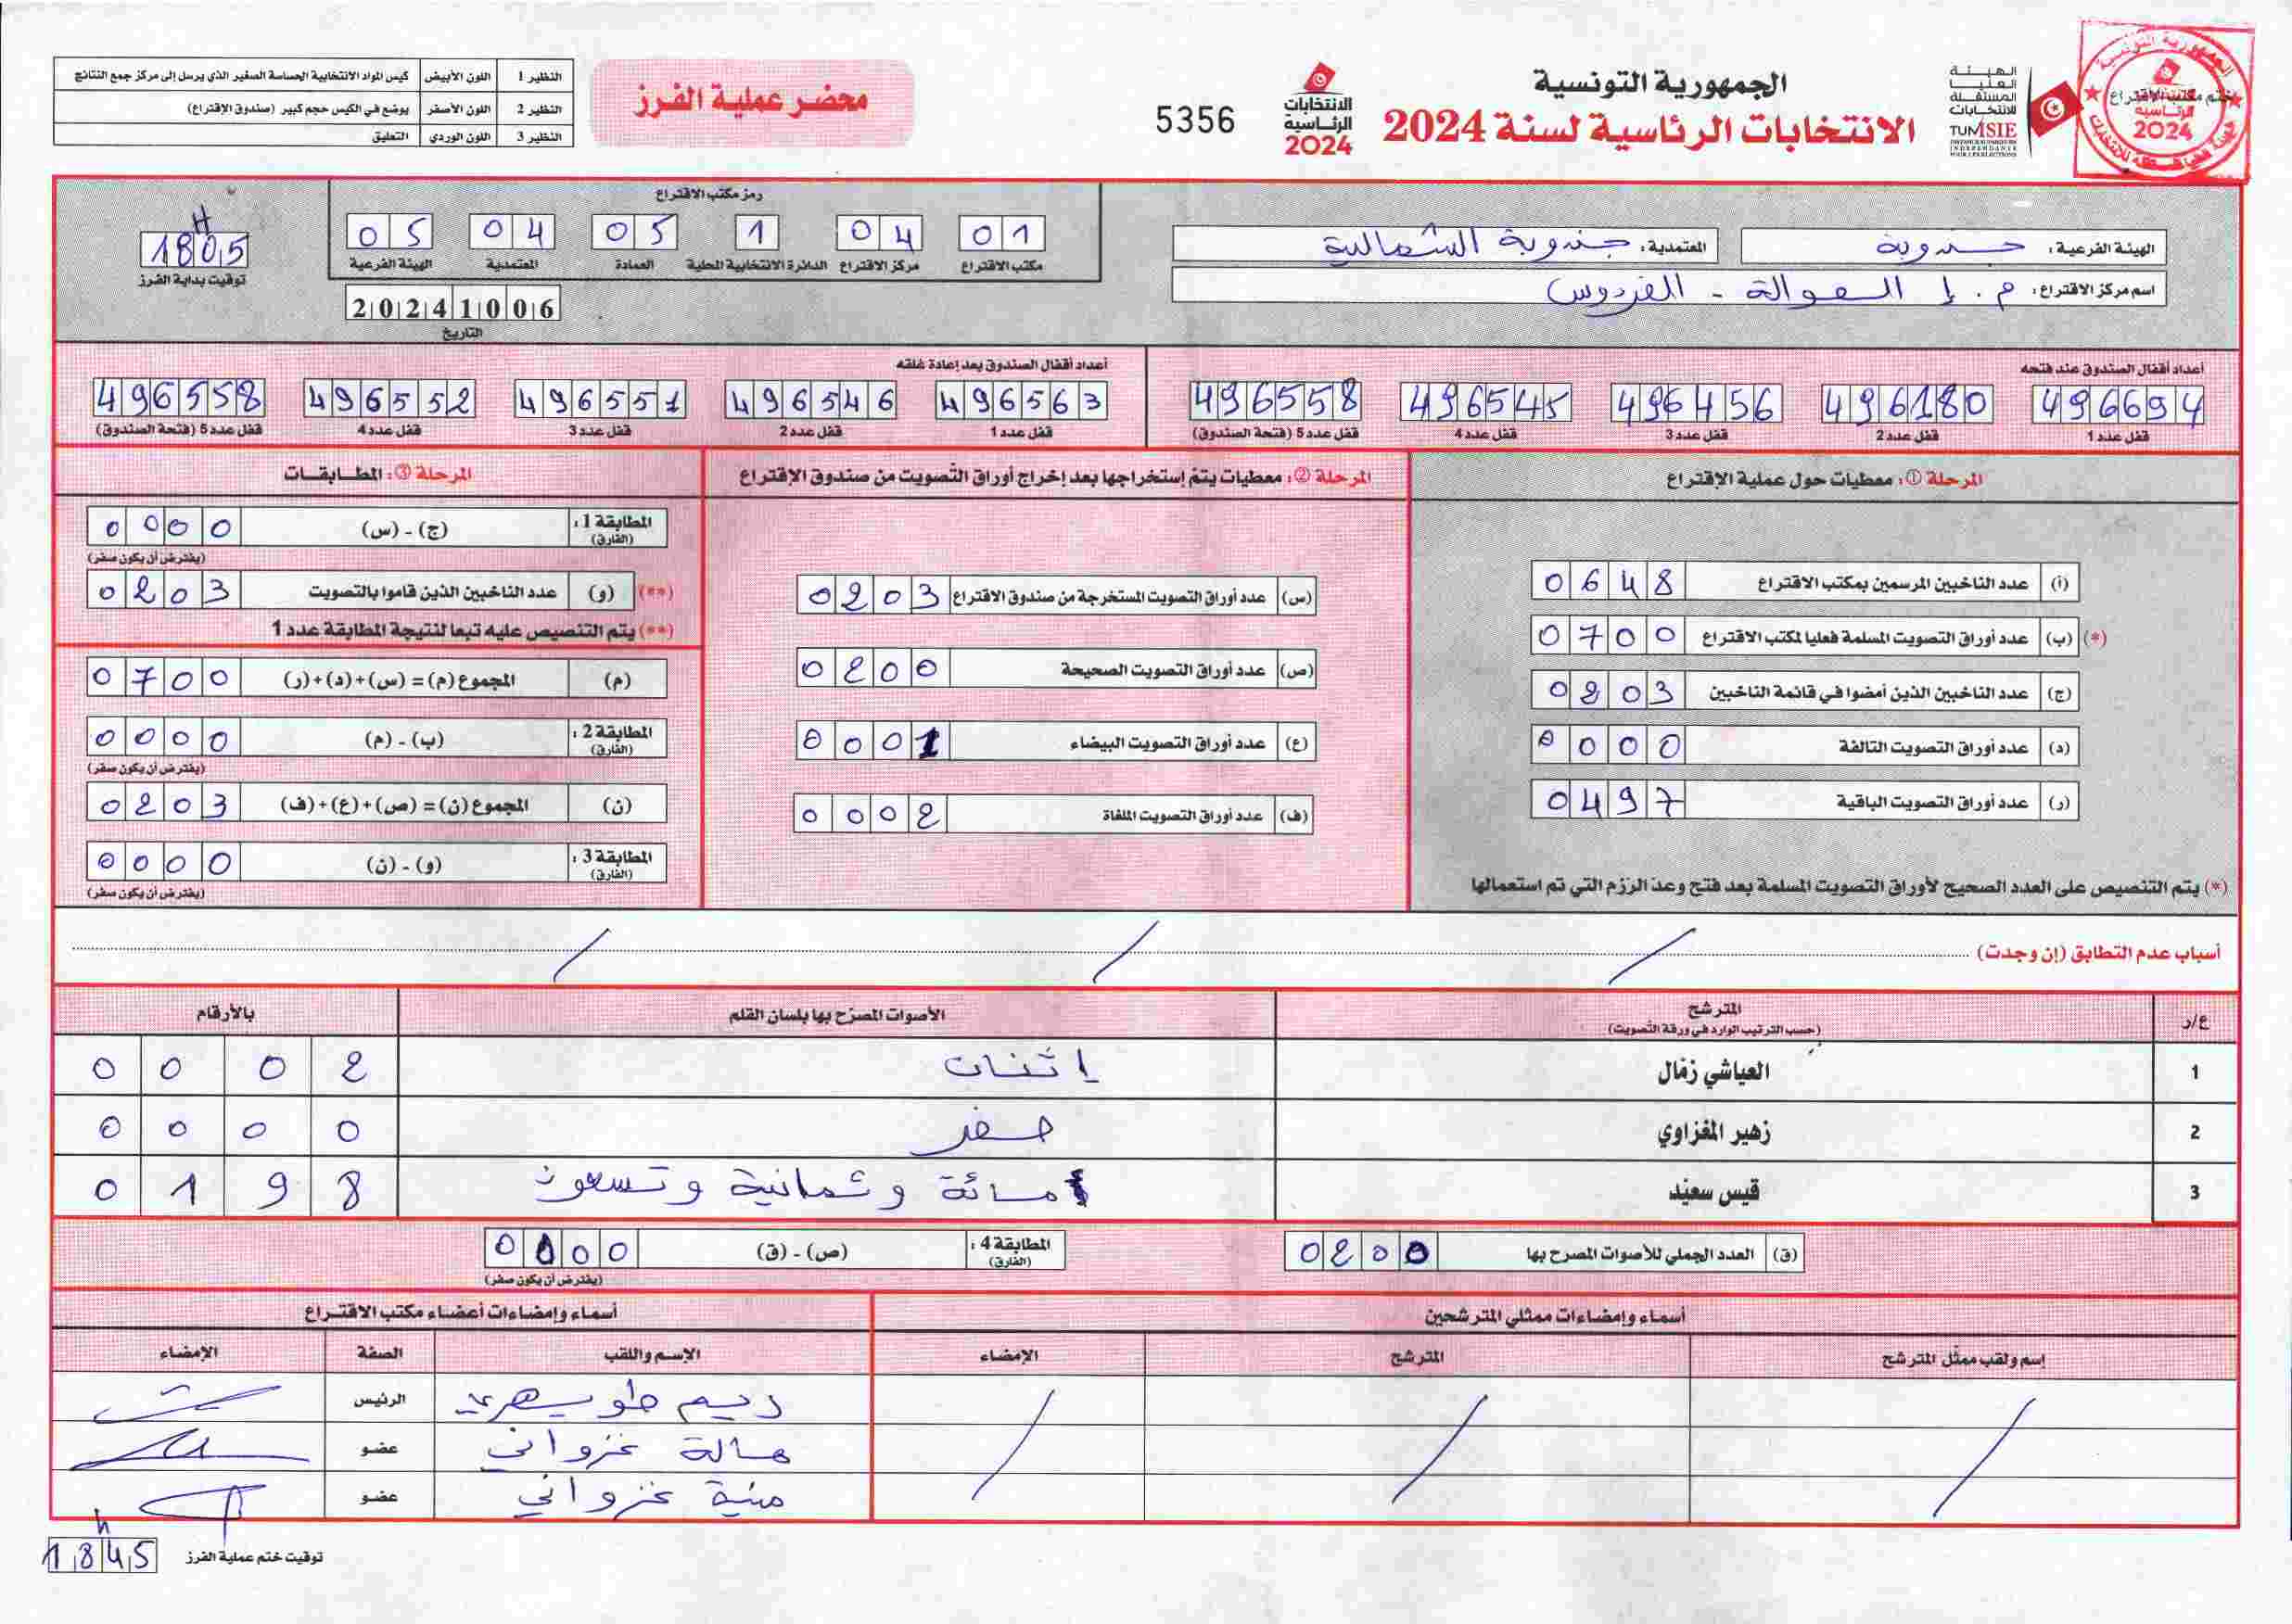 ختم مكتب الاقتراع
الجمهورية التونسية
الهيئة العليا المستقلة للانتخابات
TUNISIE
الجمهورية التونسية
الانتخابات الرئاسية لسنة 2024
الانتخابات الرئاسية 2024
5356
محضر عملية الفرز
النظير 1 اللون الأبيض كيس المواد الانتخابية الحساسة الصغير الذي يرسل إلى مركز جمع النتائج
النظير 2 اللون الأصفر يوضع في الكيس حجم كبير (صندوق الاقتراع)
النظير 3 اللون الوردي التعليق
الهيئة الفرعية: جندوبة
المعتمدية: جندوبة الشمالية
اسم مركز الاقتراع: م. إ السوالة - الفردوس
رمز مكتب الاقتراع
01 04 1 05 04 05
مكتب الاقتراع مركز الاقتراع الدائرة الانتخابية المحلية العمادة المعتمدية الهيئة الفرعية
20241006
التاريخ
18H05
توقيت بداية الفرز
أعداد أقفال الصندوق عند فتحه
496694 496180 496456 496545 496558
قفل عدد 1 قفل عدد 2 قفل عدد 3 قفل عدد 4 قفل عدد 5 (فتحة الصندوق)
أعداد أقفال الصندوق بعد إعادة غلقه
496563 496546 496551 496552 496558
قفل عدد 1 قفل عدد 2 قفل عدد 3 قفل عدد 4 قفل عدد 5 (فتحة الصندوق)
المرحلة ①: معطيات حول عملية الإقتراع
(أ) عدد الناخبين المرسمين بمكتب الاقتراع 0648
(*) (ب) عدد أوراق التصويت المسلمة فعليا لمكتب الاقتراع 0700
(ج) عدد الناخبين الذين أمضوا في قائمة الناخبين 0203
(د) عدد أوراق التصويت التالفة 0000
(ر) عدد أوراق التصويت الباقية 0497
(*) يتم التنصيص على العدد الصحيح لأوراق التصويت المسلمة بعد فتح وعدّ الرّزم التي تم استعمالها
المرحلة ②: معطيات يتم إستخراجها بعد إخراج أوراق التّصويت من صندوق الإقتراع
(س) عدد أوراق التصويت المستخرجة من صندوق الاقتراع 0203
(ص) عدد أوراق التصويت الصحيحة 0200
(ع) عدد أوراق التصويت البيضاء 0001
(ف) عدد أوراق التصويت الملغاة 0002
المرحلة ③: المطابقات
المطابقة 1: (الفارق) (ج) - (س) 0000
(يفترض أن يكون صفر)
(**) (و) عدد الناخبين الذين قاموا بالتصويت 0203
(**) يتم التنصيص عليه تبعا لنتيجة المطابقة عدد 1
(م) المجموع (م) = (س)+(د)+(ر) 0700
المطابقة 2: (الفارق) (ب) - (م) 0000
(يفترض أن يكون صفر)
(ن) المجموع (ن) = (ص)+(ع)+(ف) 0203
المطابقة 3: (الفارق) (و) - (ن) 0000
(يفترض أن يكون صفر)
أسباب عدم التطابق (إن وجدت) / / /
ع/ر المترشح (حسب الترتيب الوارد في ورقة التّصويت) الأصوات المصرّح بها بلسان القلم بالأرقام
1 العياشي زمّال إثنان 0002
2 زهير المغزاوي صفر 0000
3 قيس سعيّد مائة وثمانية وتسعون 0198
(ق) العدد الجملي للأصوات المصرح بها 0200
المطابقة 4: (الفارق) (ص) - (ق) 0000
(يفترض أن يكون صفر)
أسماء وإمضاءات ممثلي المترشحين
إسم ولقب ممثّل المترشح المترشح الإمضاء
/ / /
أسماء وإمضاءات أعضاء مكتب الاقتراع
الإسم واللقب الصفة الإمضاء
ريم طويهري الرئيس
هالة غزواني عضو
منية غزواني عضو
18h45
توقيت ختم عملية الفرز